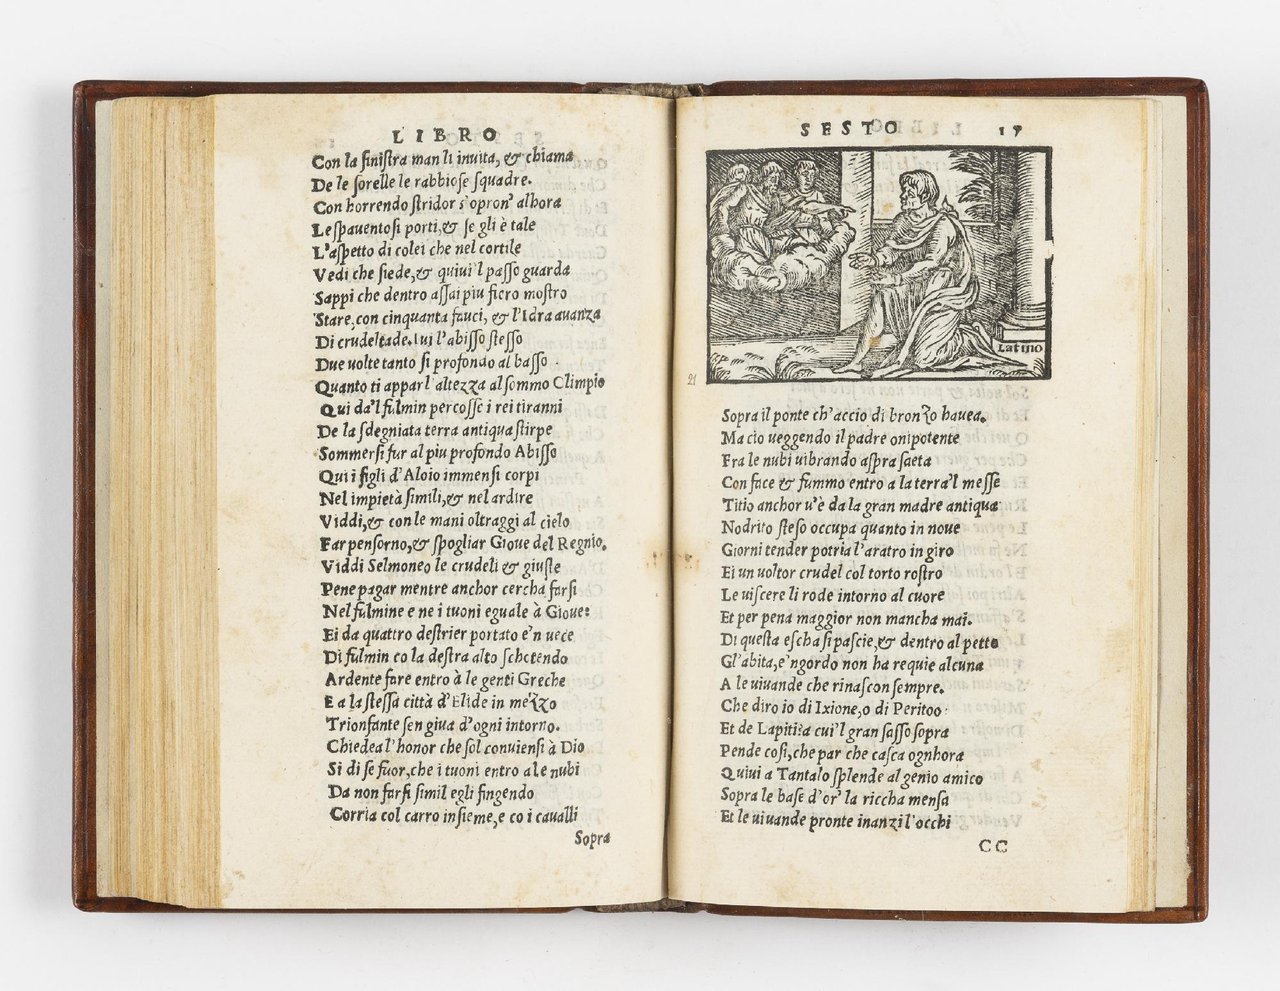 LIBRO
Con la siniſtra man li inuita, & chiama
De le ſorelle le rabbioſe ſquadre.
Con horrendo ſtridor s'opron' alhora
Le ſpauentoſi porti, & ſe gli è tale
L'aſpetto di colei che nel cortile
Vedi che ſiede, & quiui'l paſſo guarda
Sappi che dentro aſſai piu fiero moſtro
Stare, con cinquanta fauci, & l'Idra auanza
Di crudeltade. lui l'abiſſo ſteſſo
Due uolte tanto ſi profondo al baſſo
Quanto ti appar l'altezza al ſommo Olimpio
Qui da'l fulmin percoſſe i rei tiranni
De la ſdegniata terra antiqua ſtirpe
Sommerſi fur al piu profondo Abiſſo
Qui i figli d'Aloio immenſi corpi
Nel impietà ſimili, & nel ardire
Viddi, & con le mani oltraggi al cielo
Far penſorno, & ſpogliar Gioue del Regnio.
Viddi Selmoneo le crudeli & giuſte
Pene pagar mentre anchor cercha farſi
Nel fulmine e ne i tuoni eguale à Gioue:
Ei da quattro deſtrier portato e'n uece
Di fulmin co la deſtra alto ſchotendo
Ardente fare entro à le genti Greche
E a la ſteſſa città d'Elide in mezzo
Trionfante ſen giua d'ogni intorno.
Chiedea l'honor che ſol conuienſi à Dio
Si di ſe fuor, che i tuoni entro a le nubi
Da non farſi ſimil egli fingendo
Corria col carro inſieme, e co i caualli
Sopra
SESTO 17
Latino
21
Sopra il ponte ch'accio di bronzo hauea.
Ma cio ueggendo il padre onipotente
Fra le nubi uibrando aſpra ſaeta
Con face & fummo entro a la terra'l meſſe
Titio anchor u'è da la gran madre antiqua
Nodrito ſteſo occupa quanto in noue
Giorni tender potria l'aratro in giro
Ei un uoltor crudel col torto roſtro
Le uiſcere li rode intorno al cuore
Et per pena maggior non mancha mai.
Di queſta eſcha ſi paſcie, & dentro al petto
Gl'abita, e'ngordo non ha requie alcuna
A le uiuande che rinaſcon ſempre.
Che diro io di Ixione, o di Peritoo
Et de Lapiti: a cui'l gran ſaſſo ſopra
Pende coſi, che par che caſca ognhora
Quiui a Tantalo ſplende al genio amico
Sopra le baſe d'or' la riccha menſa
Et le uiuande pronte inanzi l'occhi
CC